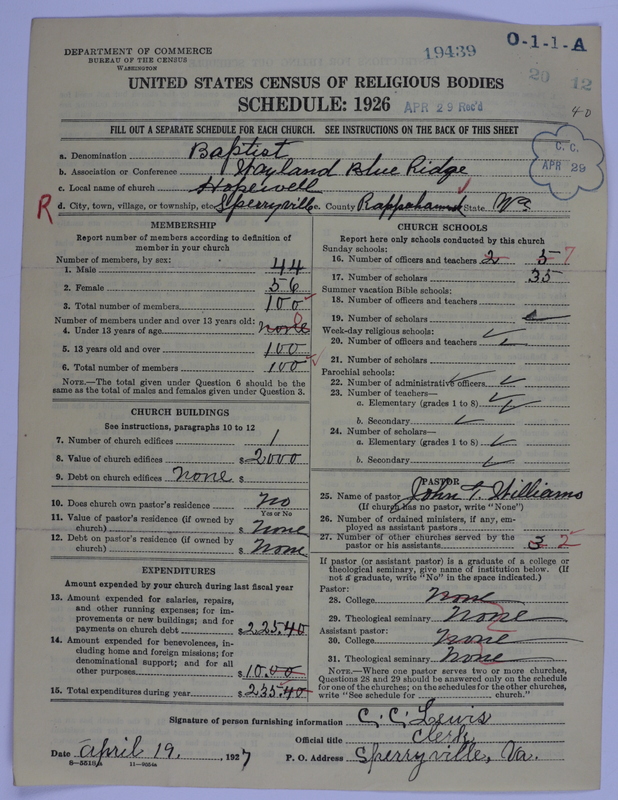 DEPARTMENT OF COMMERCE
BUREAU OF THE CENSUS
WASHINGTON
19439
O-1-1-A
20 12
UNITED STATES CENSUS OF RELIGIOUS BODIES
SCHEDULE: 1926
APR 29 Rec'd
40
FILL OUT A SEPARATE SCHEDULE FOR EACH CHURCH. SEE INSTRUCTIONS ON THE BACK OF THIS SHEET
C. C.
APR 29
a. Denomination Baptist
b. Association or Conference Wayland Blue Ridge
c. Local name of church Hopewell
R
d. City, town, village, or township, etc. Sperryville e. County Rappahannock State Va
MEMBERSHIP
Report number of members according to definition of
member in your church
Number of members, by sex:
1. Male 44
2. Female 56
3. Total number of members 100
Number of members under and over 13 years old:
4. Under 13 years of age none 0
5. 13 years old and over 100
6. Total number of members 100
NOTE.—The total given under Question 6 should be the
same as the total of males and females given under Question 3.
CHURCH BUILDINGS
See instructions, paragraphs 10 to 12
7. Number of church edifices 1
8. Value of church edifices $ 2000
9. Debt on church edifices None $
10. Does church own pastor's residence no
Yes or No
11. Value of pastor's residence (if owned by
church) $ None
12. Debt on pastor's residence (if owned by
church) $ None
EXPENDITURES
Amount expended by your church during last fiscal year
13. Amount expended for salaries, repairs,
and other running expenses; for im-
provements or new buildings; and for
payments on church debt $ 225.40
14. Amount expended for benevolences, in-
cluding home and foreign missions; for
denominational support; and for all
other purposes $ 10.00
15. Total expenditures during year $ 235.40
CHURCH SCHOOLS
Report here only schools conducted by this church
Sunday schools:
16. Number of officers and teachers 2 5 7
17. Number of scholars 35
Summer vacation Bible schools:
18. Number of officers and teachers
19. Number of scholars
Week-day religious schools:
20. Number of officers and teachers
21. Number of scholars
Parochial schools:
22. Number of administrative officers
23. Number of teachers—
a. Elementary (grades 1 to 8)
b. Secondary
24. Number of scholars—
a. Elementary (grades 1 to 8)
b. Secondary
PASTOR
25. Name of pastor John T. Williams
(If church has no pastor, write "None")
26. Number of ordained ministers, if any, em-
ployed as assistant pastors
27. Number of other churches served by the
pastor or his assistants 3 2
If pastor (or assistant pastor) is a graduate of a college or
theological seminary, give name of institution below. (If
not a graduate, write "No" in the space indicated.)
Pastor:
28. College None
29. Theological seminary None
Assistant pastor:
30. College None
31. Theological seminary None
NOTE.—Where one pastor serves two or more churches,
Questions 28 and 29 should be answered only on the schedule
for one of the churches; on the schedules for the other churches,
write "See schedule for church."
Signature of person furnishing information C. C. Lewis
Official title Clerk
Date April 19, 1927 P. O. Address Sperryville, Va.